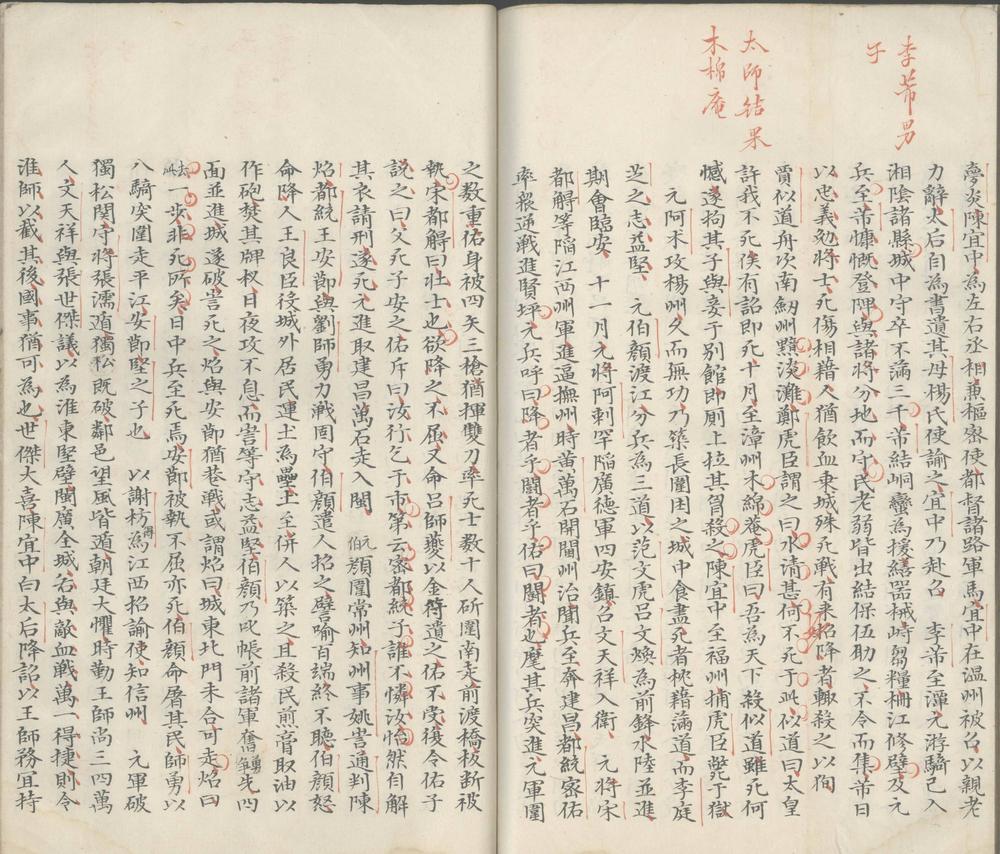 李芾男
子
太師結果
木棉庵
夢炎陳宜中為左右丞相兼樞密使都督諸路軍馬宜中在溫州被召以親老
力辭太后自為書遺其母楊氏使諭之宜中乃赴召　李芾至潭元游騎已入
湘陰諸縣城中守卒不滿三千芾結峒蠻為援繕器械峙芻糧柵江修壁及元
兵至芾慷慨登陴與諸將分地而守民老弱皆出結保伍助之不令而集芾日
以忠義勉將士死傷相藉人猶飲血乘城殊死戰有来招降者輒殺之以徇
賈似道舟次南劒州黯淡灘鄭虎臣謂之曰水清甚何不死于此似道曰太皇
許我不死俟有詔即死十月至漳州木綿菴虎臣曰吾為天下殺似道雖死何
憾遂拘其子與妾于別館即厠上拉其胷殺之陳宜中至福州捕虎臣斃于獄
元阿朮攻楊州久而無功乃築長圍困之城中食盡死者枕藉滿道而李庭
芝之志益堅　元伯顏渡江分兵為三道以范文虎吕文煥為前鋒水陸並進
期會臨安　十一月元將阿剌罕陷廣德軍四安鎮召文天祥入衛　元將宋
都䚟等陷江西州軍進逼撫州時黃萬石開閫州治聞兵至奔建昌都統密佑
率眾逆戰進賢坪元兵呼曰降者乎鬪者乎佑曰鬪者也麾其兵突進元軍圍
之數重佑身被四矢三槍猶揮雙刀率死士數十人斫圍南走前渡橋板斷被
執宋都䚟曰壯士也欲降之不屈又命吕師夔以金符遺之佑不受復令佑子
說之曰父死子安之佑斥曰汝行乞于市第云密都統子誰不憐汝怡然自解
其衣請刑遂死元進取建昌萬石走入閩　元伯顏圍常州知州事姚訔通判陳
炤都統王安節與劉師勇力戰固守伯顏遣人招之譬喻百端終不聽伯顏怒
命降人王良臣役城外居民運土為壘土至併人以築之且殺民煎膏取油以
作砲焚其牌杈日夜攻不息而訔等守志益堅伯顏乃叱帳前諸軍奮勇爭先四
面並進城遂破訔死之炤與安節猶巷戰或謂炤曰城東北門未合可走炤曰
去此一步非死所矣日中兵至死焉安節被執不屈亦死伯顏命屠其民師勇以
八騎突圍走平江安節堅之子也　以謝枋得為江西招諭使知信州　元軍破
獨松関守將張濡遁獨松既破鄰邑望風皆遁朝廷大懼時勤王師尚三四萬
人文天祥與張世傑議以為淮東堅壁閩廣全城若與敵血戰萬一得捷則令
淮師以截其後國事猶可為也世傑大喜陳宜中白太后降詔以王師務宜持